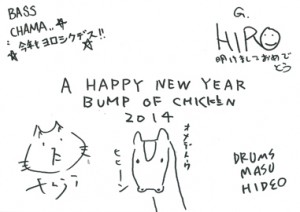 BASS
CHAMA..☆
今年もヨロシクデス!!
G.
HIRO
明けましておめで
とう
A HAPPY NEW YEAR
BUMP OF CHICKEN
2014
オメデトウ
ヒヒーン
DRUMS
MASU
HIDEO